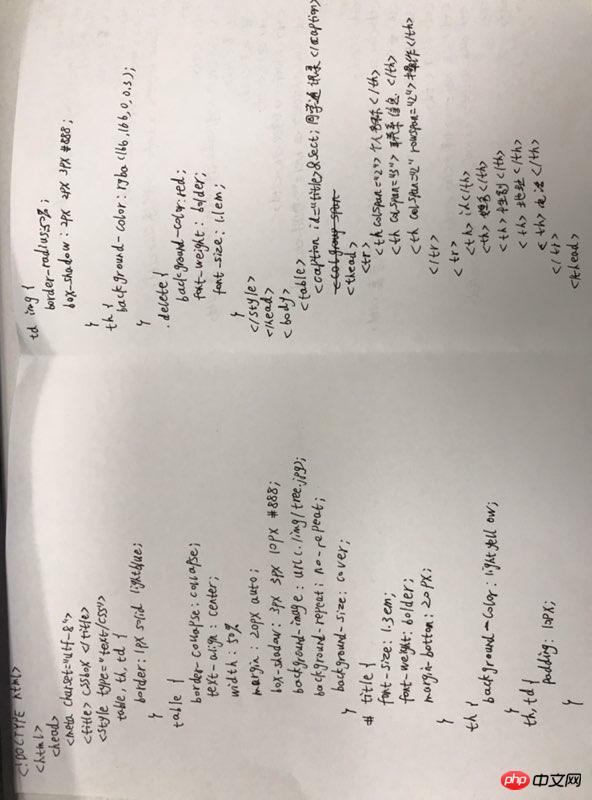 <!DOCTYPE html>
<html>
<head>
<meta charset="utf-8">
<title> cssbox </title>
<style type="text/css">
table, th, td {
border: 1px solid lightblue;
}
table {
border-collapse: collapse;
text-align: center;
width: 50%
margin: 20px auto;
box-shadow: 3px 3px 10px #888;
background-image: url(./img/tree.jpg);
background-repeat: no-repeat;
background-size: cover;
}
# title {
font-size: 1.3em;
font-weight: bolder;
margin-bottom: 20px;
}
th {
background-color: lightyellow;
}
th, td {
padding: 10px;
}
td img {
border-radius: 5%;
box-shadow: 2px 2px 3px #888;
}
th {
background-color: rgba(166,166,0,0.3);
}
.delete {
background-color: red;
font-weight: bolder;
font-size: 1.1em;
}
</style>
</head>
<body>
<table>
<caption id="title">&sect; 同学通讯录 </caption>
<colgroup span
<thead>
<tr>
<th colspan="2"> 个人 </th>
<th colspan="3"> 信息 </th>
<th colspan="2" rowspan="2">操作</th>
</tr>
<tr>
<th> id</th>
<th> 姓名</th>
<th> 性别</th>
<th> 地址 </th>
<th> 电话 </th>
</tr>
</thead>
php 中文网